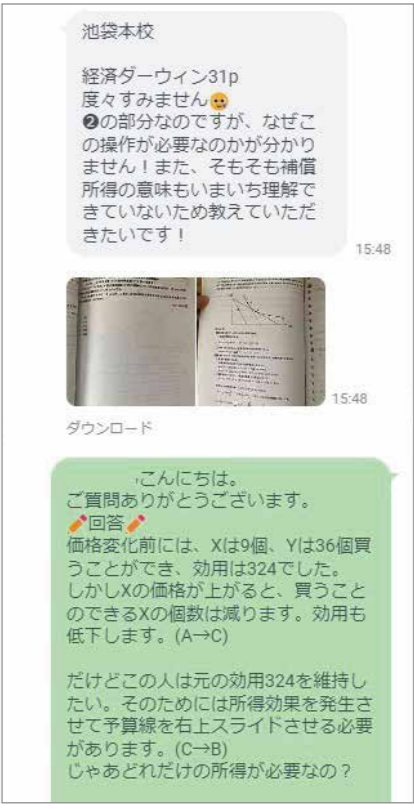 池袋本校
経済ダーウィン31p
度々すみません
❷の部分なのですが、なぜこ
の操作が必要なのかが分かり
ません！また、そもそも補償
所得の意味もいまいち理解で
きていないため教えていただ
きたいです！
15:48
15:48
ダウンロード
こんにちは。
ご質問ありがとうございます。
回答
価格変化前には、Xは9個、Yは36個買
うことができ、効用は324でした。
しかしXの価格が上がると、買うこと
のできるXの個数は減ります。効用も
低下します。(A→C)
だけどこの人は元の効用324を維持し
たい。そのためには所得効果を発生さ
せて予算線を右上スライドさせる必要
があります。(C→B)
じゃあどれだけの所得が必要なの？